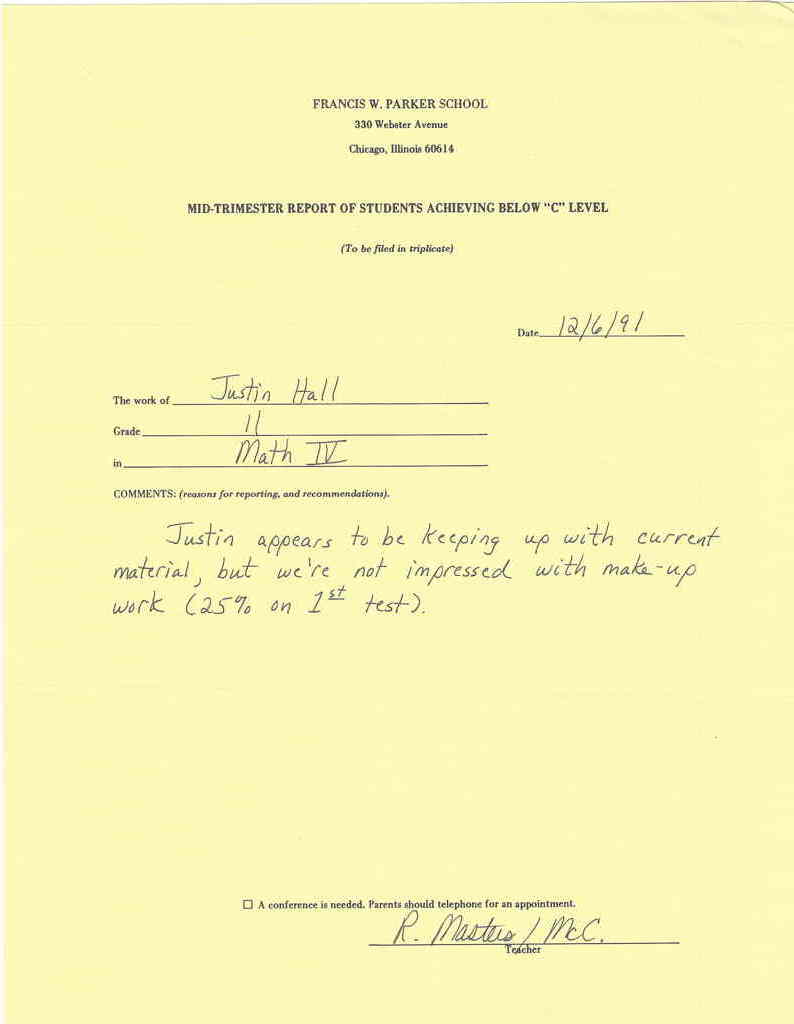 FRANCIS W. PARKER SCHOOL
330 Webster Avenue
Chicago, Illinois 60614
MID-TRIMESTER REPORT OF STUDENTS ACHIEVING BELOW "C" LEVEL
(To be filed in triplicate)
Date 12/6/91
The work of Justin Hall
Grade 11
in Math IV
COMMENTS: (reasons for reporting, and recommendations).
Justin appears to be keeping up with current
material, but we're not impressed with make-up
work (25% on 1st test).
☐ A conference is needed. Parents should telephone for an appointment.
R. Masters / McC.
Teacher